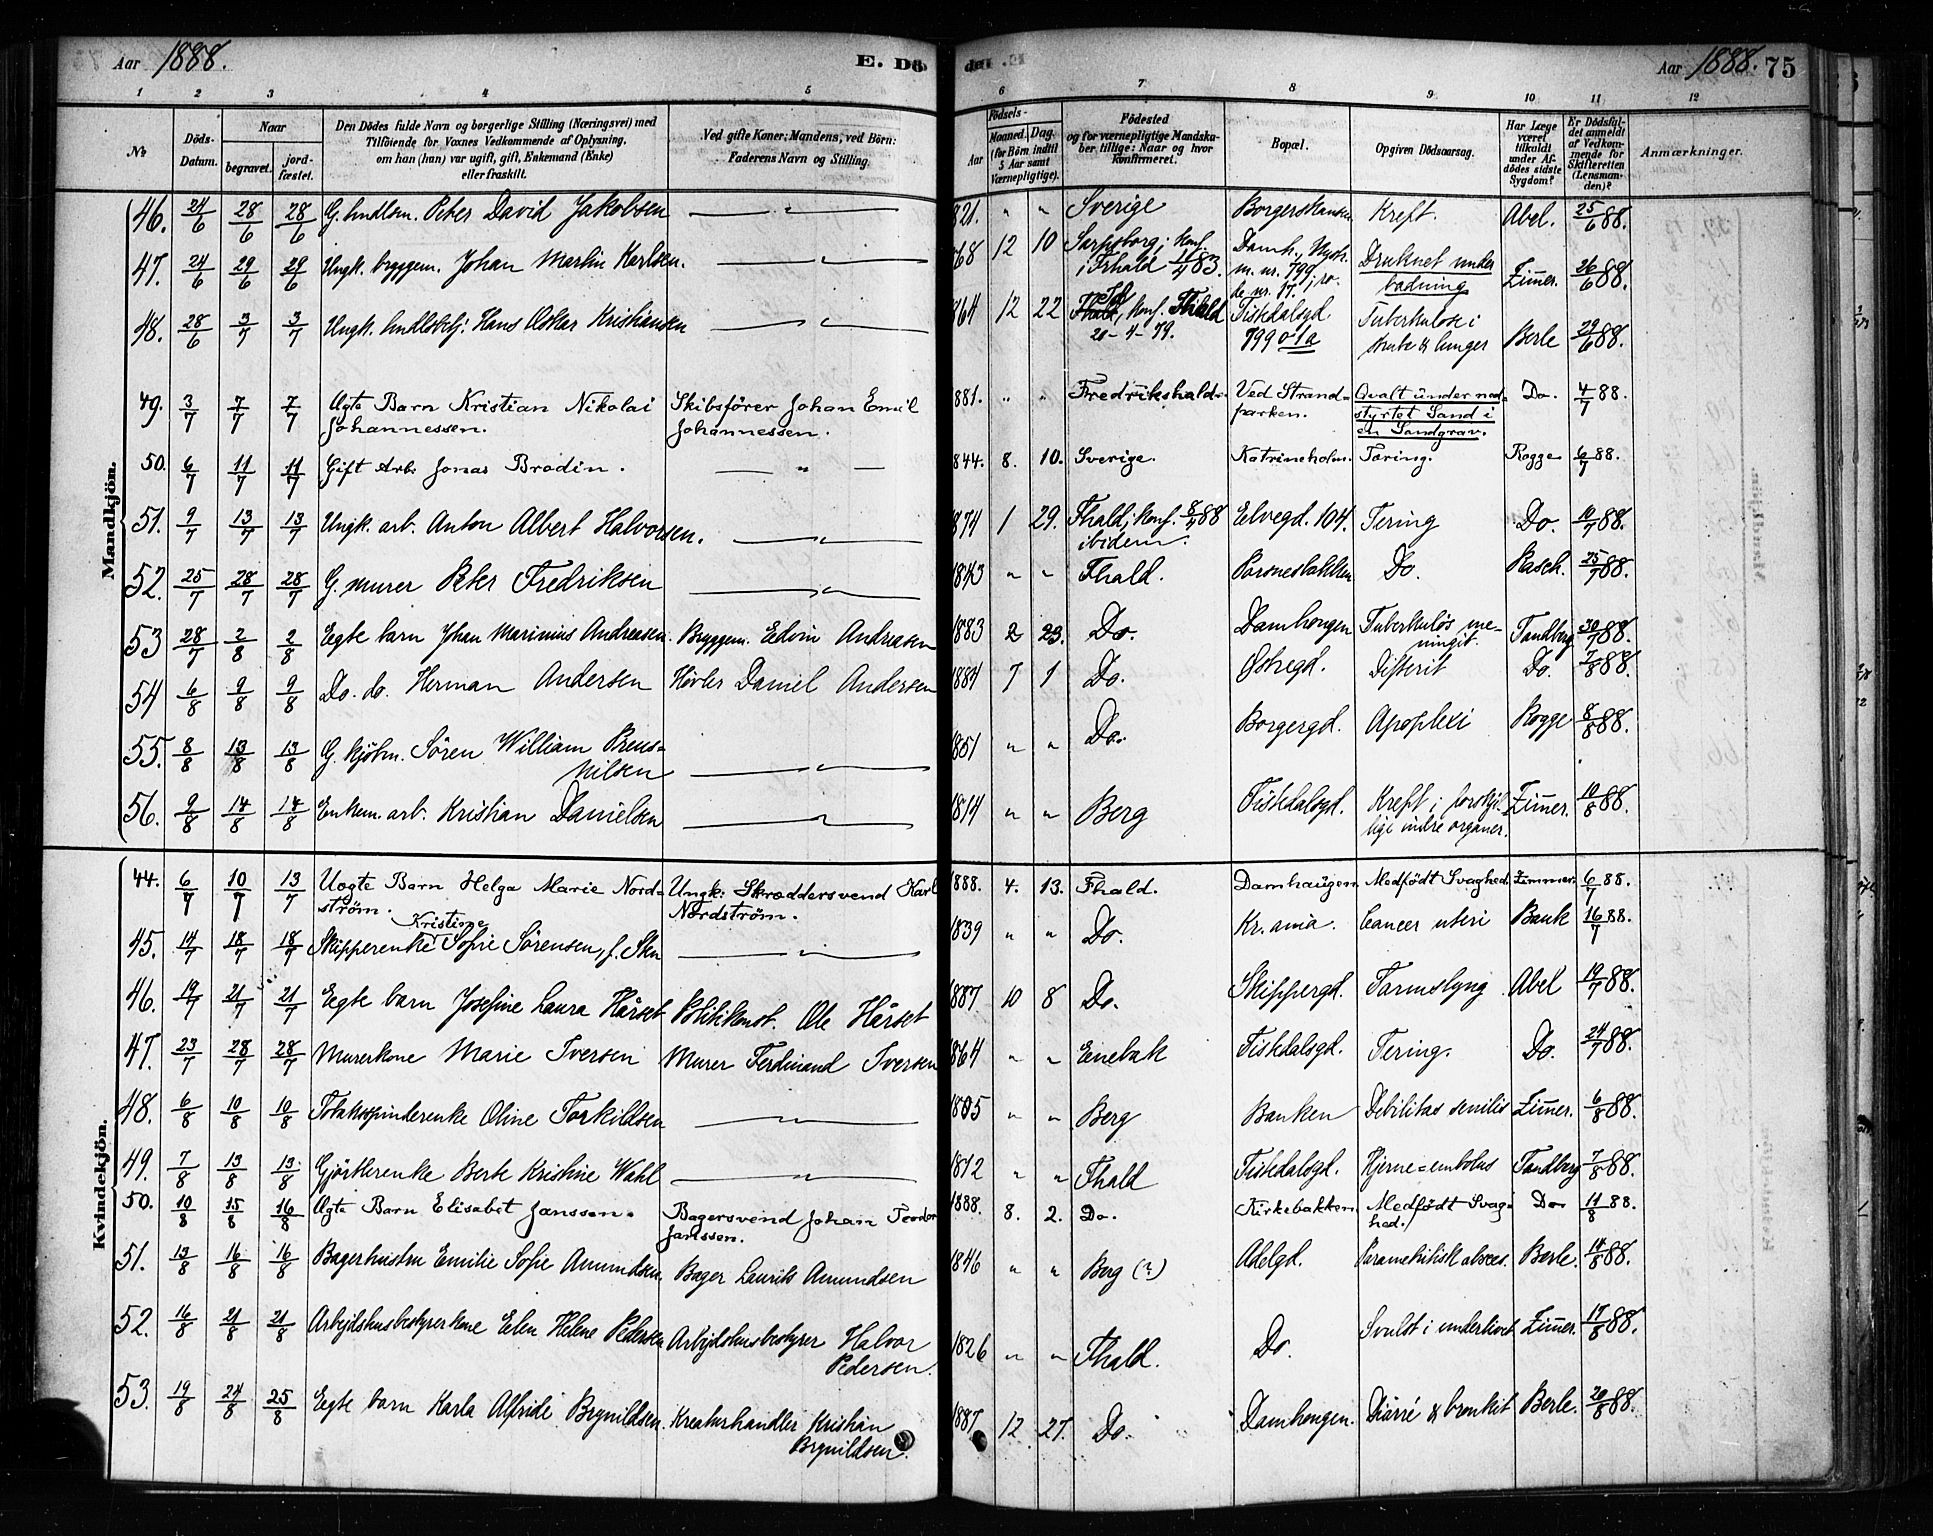 Aar 1888. E. Dö
1 2 3 4 5
№ Döds-Datum. Naar begravet. jord-fæstet. Den Dödes fulde Navn og borgerlige Stilling (Næringsvei) med Tilföiende for Voxnes Vedkommende af Oplysning, om han (hun) var ugift, gift, Enkemand (Enke) eller fraskilt. Ved gifte Koner: Mandens, ved Börn: Faderens Navn og Stilling.
Mandkjön.
46. 24/6 28/6 28/6 G. hndlsm. Peter David Jakobsen — " —
47. 24/6 29/6 29/6 Ungk. bryggem. Johan Martin Karlsen. — " —
48. 28/6 3/7 3/7 Ungk. hndlsbetj: Hans Oskar Kristiansen — " —
49. 3/7 7/7 7/7 Ægte Barn Kristian Nikolai Skibsförer Johan Emil
Johannessen. Johannessen.
50. 6/7 11/7 11/7 Gift Arb. Jonas Brodin. — " —
51. 9/7 13/7 13/7 Ungk. arb. Anton Albert Halvorsen. — " —
52. 25/7 28/7 28/7 G. murer Peter Fredriksen — " —
53 28/7 2/8 2/8 Egte barn Johan Marinius Andreasen. Bryggem. Edvin Andreasen
54 6/8 9/8 9/8 Do. do. Herman Andersen Høvler Daniel Andersen
55. 8/8 13/8 13/8 G. kjøbm. Sören William Preus-
Nilsen — " —
56. 9/8 14/8 14/8 Enkem. arb. Kristian Danielsen — " —
Kvindekjön.
44. 6/7 10/7 13/7 Uægte Barn Helga Marie Nord- Ungk: Skræddersvend Karl
ström. Nordström.
Kristiane
45. 14/7 18/7 18/7 Skipperenke Sofie Sörensen, f. Sten — " —
46. 19/7 21/7 21/7 Egte barn Josefine Laura Hårset Politikonst. Ole Hårset
47. 23/7 28/7 28/7 Murerkone Marie Iversen Murer Ferdinand Iversen
48. 6/8 10/8 10/8 Tobakspinderenke Oline Torkildsen — " —
49. 7/8 13/8 13/8 Gjörtlerenke Berte Kristine Wahl — " —
50. 10/8 15/8 16/8 Ægte Barn Elisabet Janssen. Bagersvend Johan Teodor
Janssen.
51. 13/8 16/8 16/8 Bagerhustru Emilie Sofie Amundsen. Bager Laurits Amundsen
52. 16/8 21/8 21/8 Arbejdshusbestyrerkone Elen Helene Pedersen Arbejdshusbestyrer Halvor
Pedersen.
53. 19/8 24/8 25/8 Egte barn Karla Alfride Brynildsen. Kreaturhandler Kristian
Brynildsen.
de. Aar 1888. 75
6 7 8 9 10 11 12
Födsels- Aar Maaned. Dag. (for Börn indtil 5 Aar samt Værnepligtige). Födested og for værnepligtige Mandskaber tillige: Naar og hvor konfirmeret. Bopæl. Opgiven Dödsaarsag. Har Læge været tilkaldt under Afdödes sidste Sygdom? Er Dödsfaldet anmeldt af Vedkommende for Skifteretten (Lensmanden)? Anmærkninger.
821. " " Sverige Borgerskansen Kreft. Abel. 25/6 88.
868 12 10 Sarpsborg; konf. Damh., Mystr. Druknet under Zimer. 26/6 88.
i Frhald 83. m. nr. 799, ro- badning
de nr. 17.
864 12 22 konf. Fhald Fiskdalsgd Tuberkulose i Berle 29/6 88.
20-4-79. 799 o 1a strube & lunger
881. " " Fredrikshald. Ved Strand- Qvalt under ned- Do. 4/7 88.
parken. styrtet Sand i
en Sandgrav.
844. 8. 10. Sverige. Katrineholm. Tæring. Rogge 6/7 88.
1874 1 29. Fhald; konf. 8/4 88 Elvegd. 104. Tering Do. 10/7 88.
ibidem.
1843 " " Fhald. Do. Rasch. 25/7 88.
1883 2 23. Do. Damhaugen Tuberkuløs me- Tandberg 30/7 88.
ningit.
1884 7 1 Do. Østregd. Difterit Do. 7/8 88.
1851 " " Do. Borgergd. Apoplexi Rogge 8/8 88.
1814 " " Berg Fiskdalsgd. Kreft i forskjel- Zimer. 10/8 88.
lige indre organer.
1888. 4. 13. Fhald. Damhaugen. Medfödt Svaghed. Zimmer. 6/7 88.
1839 " " Do. Kr. ania. Cancer uteri Bank 16/7 88.
1887 10 8 Do. Skippergd. Tarmslyng Abel 19/7 88.
1864 " " Enebak Fiskdalsgd. Tering. Do. 24/7 88.
1805 " " Berg Banken Debilitas senilis Zimer. 6/8 88.
1812 " " Fhald Fiskdalsgd. Hjerne=embolus Tandberg 7/8 88.
1888. 8. 2. Do. Kirkebakken. Medfödt Svag- Do. 11/8 88.
hed.
1846 " " Berg (?) Adelgd. Parametritisk absces. Berle. 14/8 88.
1826 " " Fhald. Do. Svulst i underlivet Zimer. 17/8 88.
1887 12 27. Do. Damhaugen. Diarré & bronkit Berle. 20/8 88.